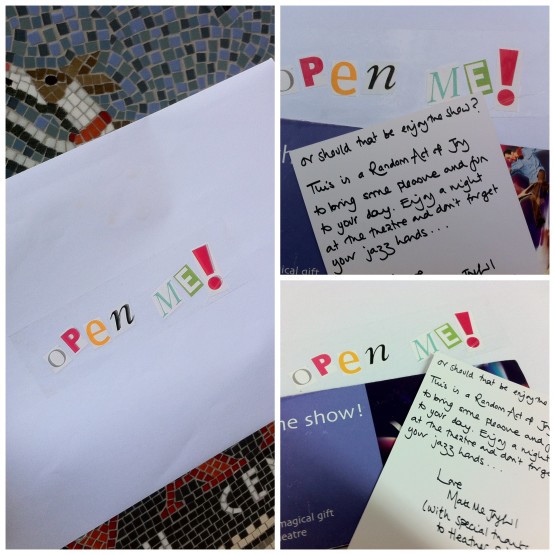 OPen ME!
CEN
OPen ME!
or should that be enjoy the show?
This is a Random Act of Joy
to bring some pleasure and fun
to your day. Enjoy a night
at the theatre and don't forget
your jazz hands...
agical gift
OPen ME!
he show!
magical gift
eatre
or should that be enjoy the
This is a Random Act of Joy
to bring some pleasure and fun
to your day. Enjoy a night
at the theatre and don't forget
your jazz hands...
Love
Make Me Joyful
(with special thanks
to Heather